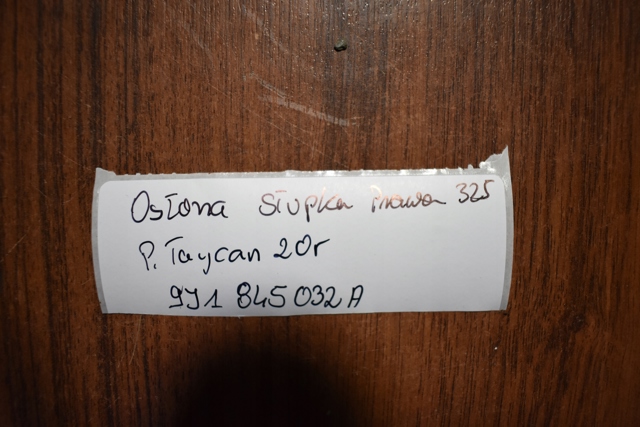 Osłona słupka prawa 325
P. Taycan 20r
9J1 845 032 A